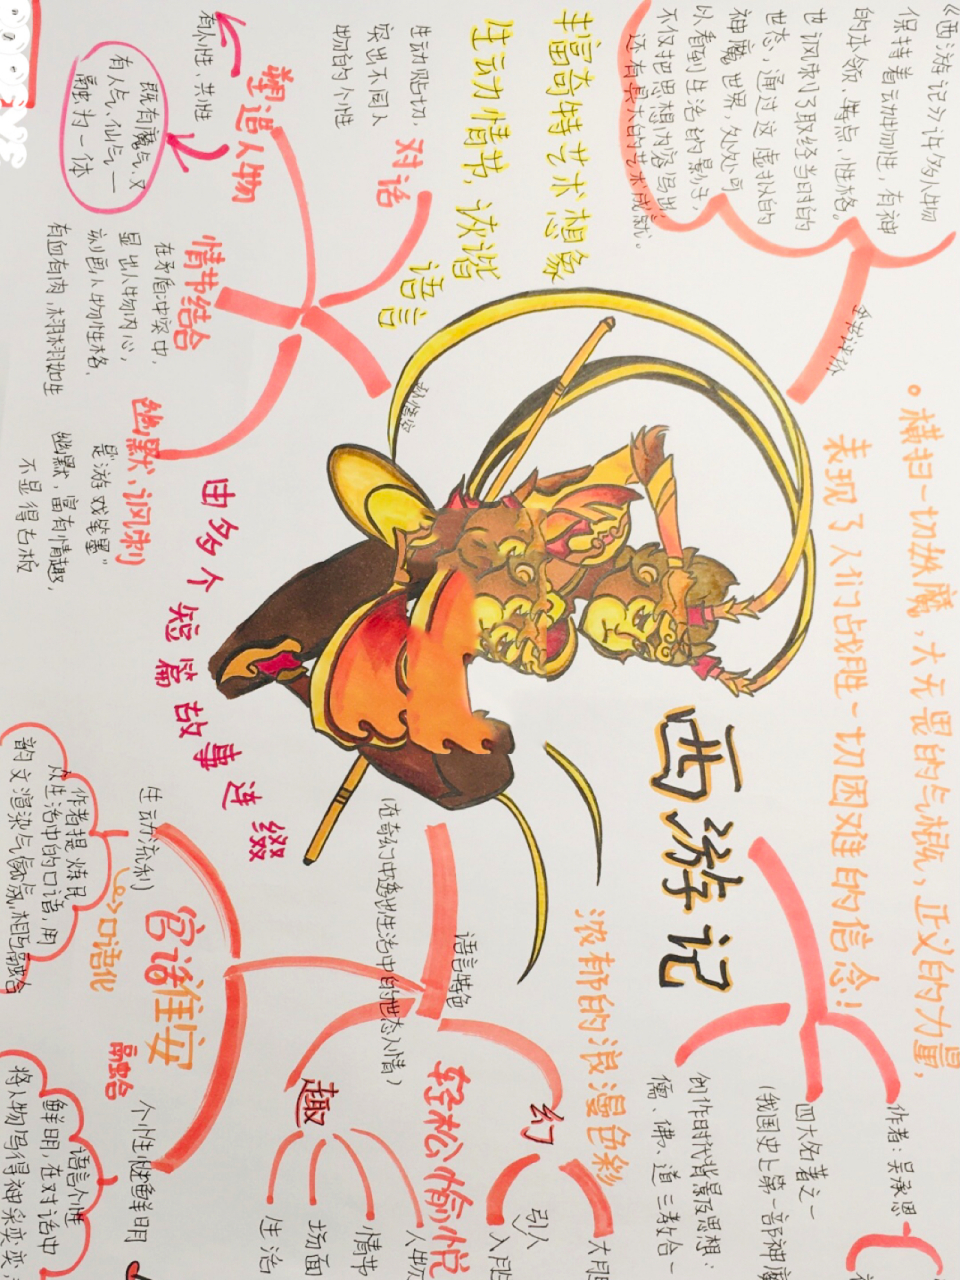 西游记
横扫一切妖魔,大无畏的气概,正义的力量,
表现了人们战胜一切困难的信念!
《西游记》许多人物
保持着云力物属性,有神
的本领、特点、性格。
也讽刺了取经当时的
世态,通过这虚拟的
神魔世界,处处可
以看到生活的影子,
不仅把思想内容写出,
还有其大的艺术成就。
丰富奇特艺术想象
生动情节,诙谐
语言
对话
生动贴切,
突出不同人
物的个性
塑造人物
有人性、共性
既有魔气,又
有人气、仙气——
融为一体
情节结合
在矛盾冲突中,
显出人物内心,
刻画人物性格,
有血有肉,栩栩如生
幽默、讽刺
是"游戏笔墨"
幽默,富有情趣,
不显得古板
由多个短篇故事连缀
作者:吴承恩
四大名著之一
创作时代背景及思想:
儒、佛、道三教合一
浓郁的浪漫色彩
幻
引人
大胆
语言特色
轻松愉悦
趣
情节
场面
生活
官话
淮安
口语化
生动流利
作者提炼民
众生活中的口语,用
韵文渲染气氛,相互融合
融合
个性鲜明
语言个性
鲜明,在对话中
将人物写得神采奕奕